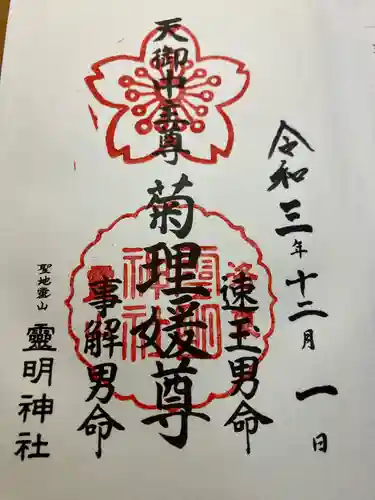 令和三年十二月一日
天御中主尊
菊理媛尊
速玉男命
事解男命
聖地霊山
靈明神社